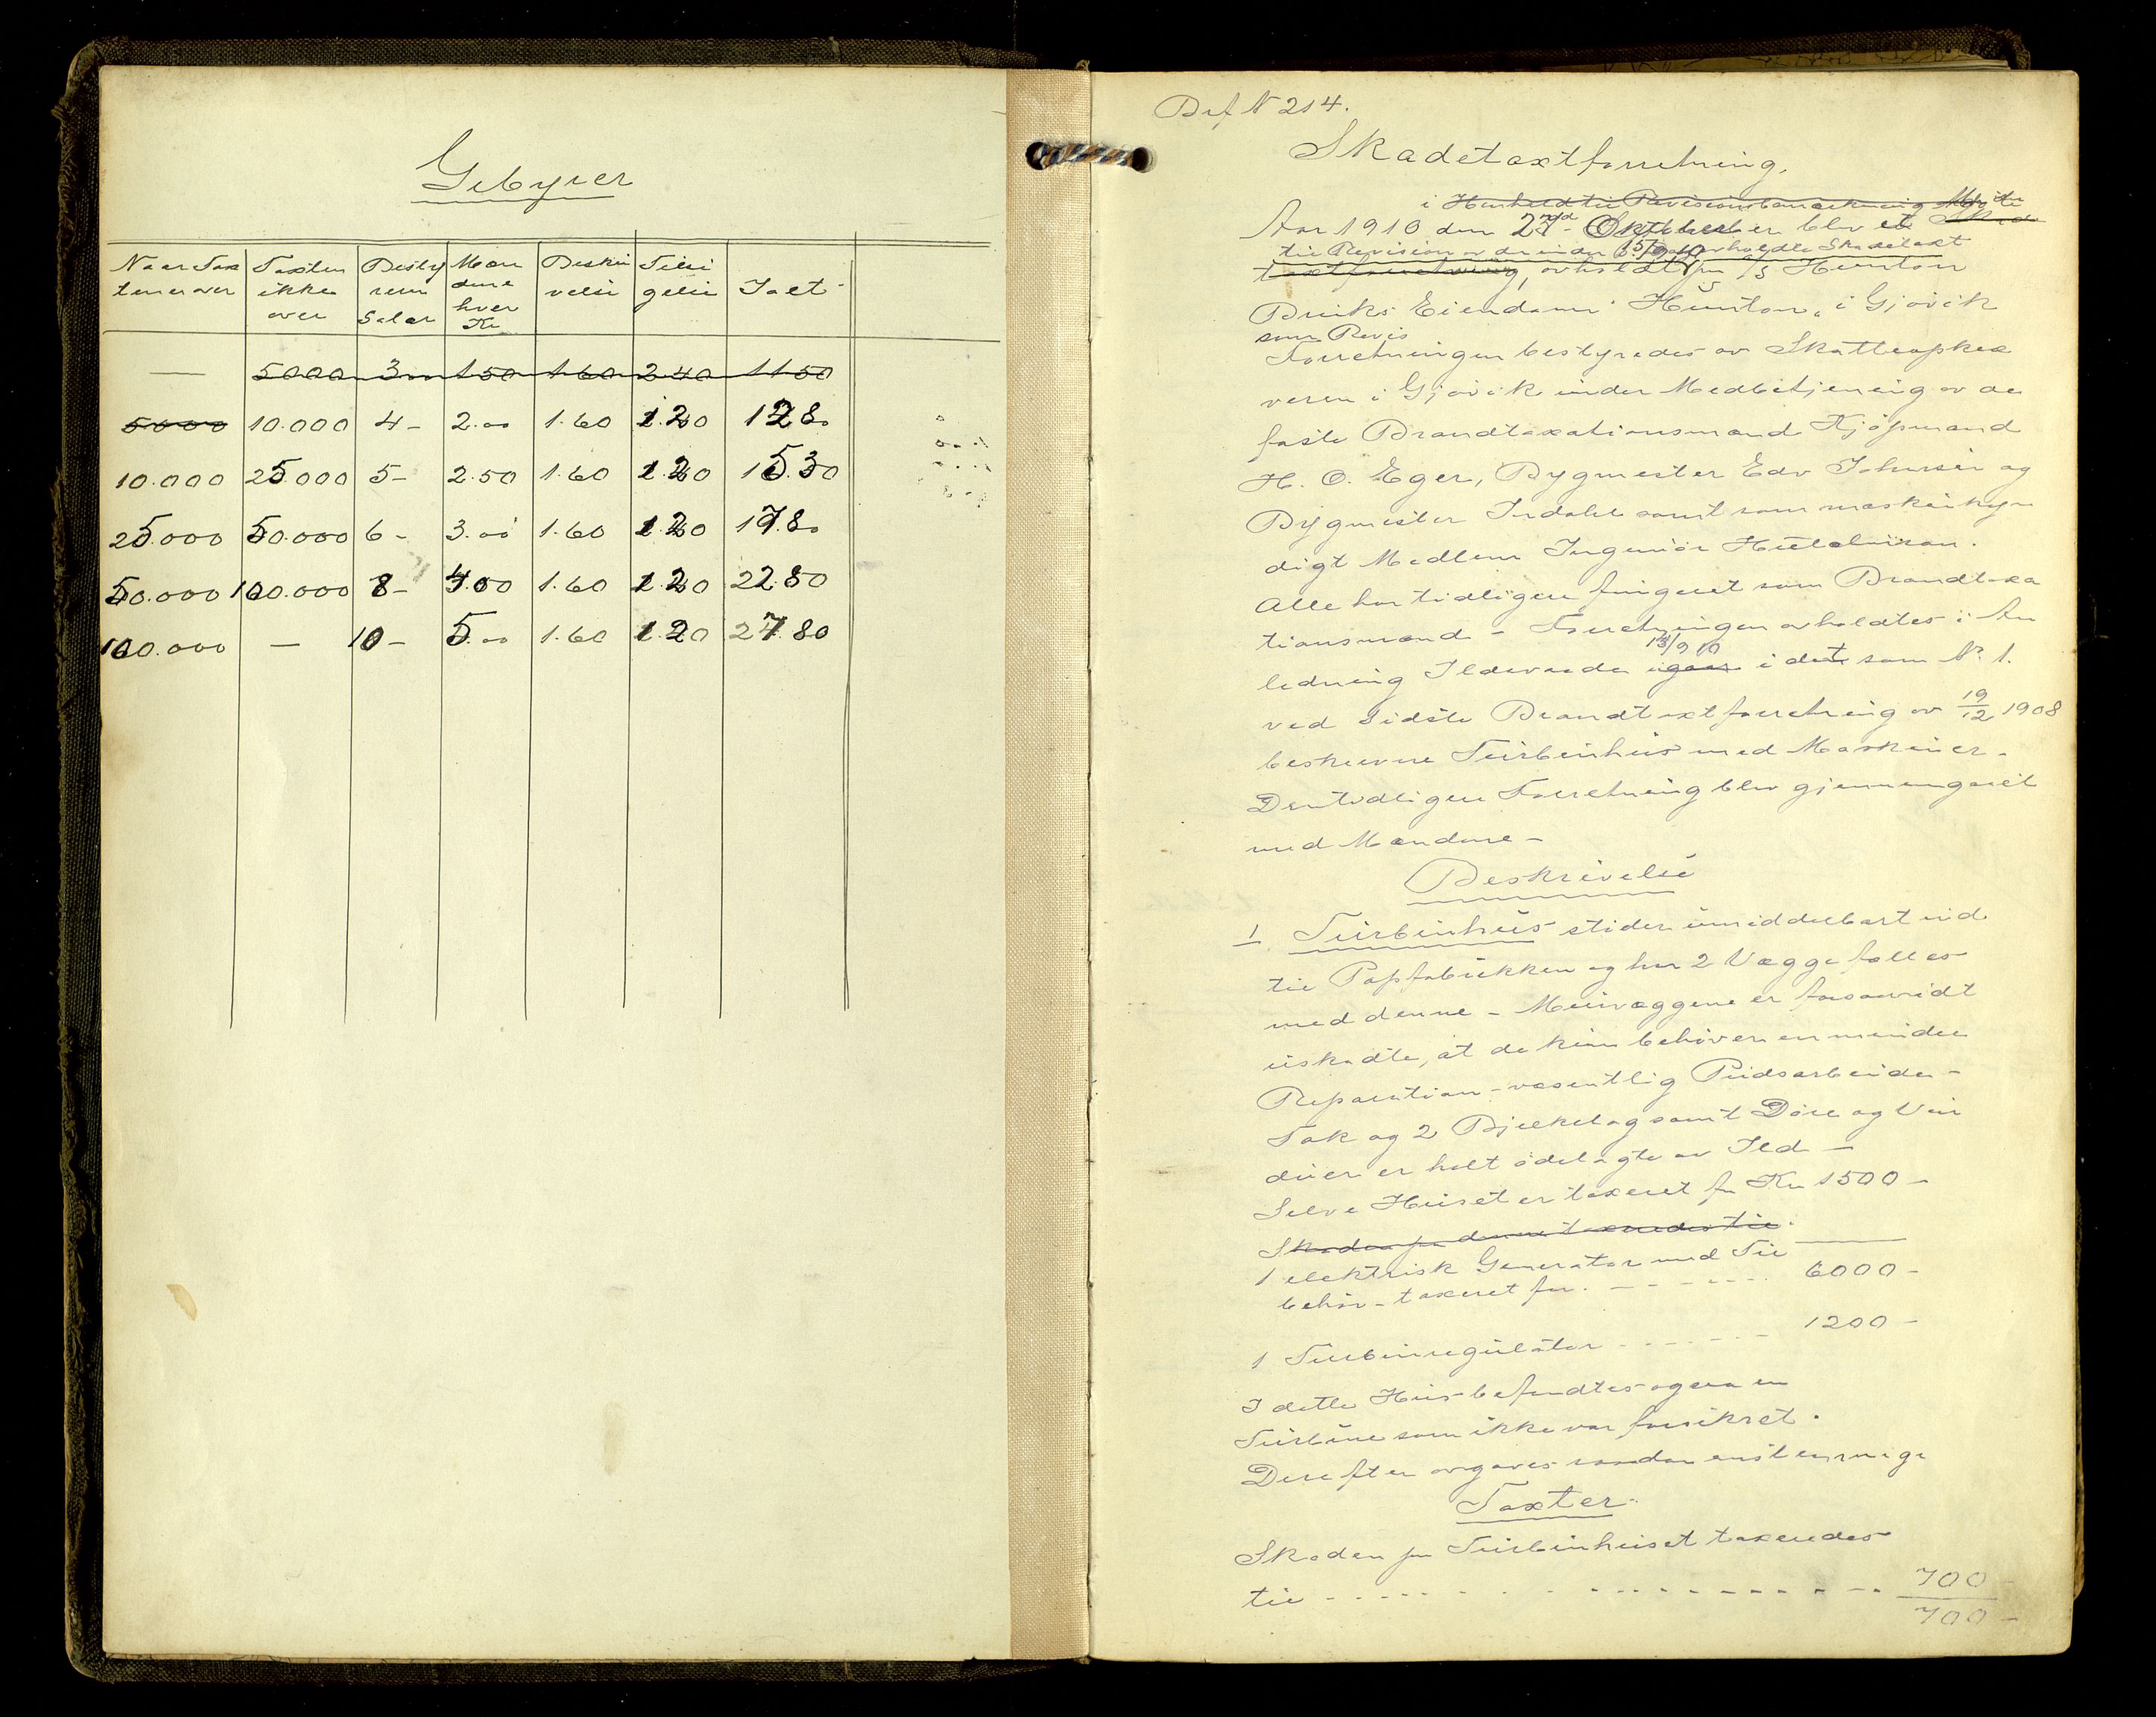 Gebyrer
Naar Tax Taxten Besty Mæn Beskri Tilsi Ialt
ten er over ikke rerens dene velse gelse
over Salær hver
Kr
— 5000 3 1.50 1.60 2.40 11.50
5000 10.000 4- 2.00 1.60 1.20 12.80
10.000 25.000 5- 2.50 1.60 1.20 15.30
25.000 50.000 6- 3.00 1.60 1.20 17.80
50.000 100.000 8- 4.00 1.60 1.20 22.80
100.000 — 10- 5.00 1.60 1.20 27.80
Bef N 214.
Skadetaxtforretning.
i Henhold til Revisionsbemærkning Møde
Aar 1910 den Oktober blev et Skade
til Revision av den under 15/9 avholdte Skadetaxt
taxtforretning, avholdt paa A/S Hunton
Bruks Eiendom Hunton, i Gjøvik
som Revis
Forretningen bestyredes av Skatteopkræ
veren i Gjøvik under Medbetjening av de
faste Brandtaxationsmænd Kjøpmand
H. O. Eger, Bygmester Edv Johnsen og
Bygmester Indahl samt som maskinkyn
digt Medlem Ingeniør
Alle har tidligere fungeret som Brandtaxa
tionsmænd - Forretningen avholdtes i An
ledning Ildsvaade igaar 13/9 10 i det som No. 1.
ved sidste Brandtaxtforretning av 19/12 1908
beskrevne Turbinhus med Maskiner -
Den tidligere Forretning blev gjennemgaaet
med Mændene -
Beskrivelse
1. Turbinhus støder umiddelbart ind
til Papfabrikken og har 2 Vægge fælles
med denne - Murvæggene er forsaavidt
uskadte, at de kun behøver en mindre
Reparation - væsentlig Pudsarbeide -
Tak og 2 Bjelkelag samt Døre og Vin
duer er helt ødelagte av Ild -
Selve Huset er taxeret for Kr 1500 -
Skaden paa denne taxeredes til
1 elektrisk Generator med Til
behør - taxeret for. - - - - - 6000 -
1 Turbinregulator - - - - - 1200 -
I dette Hus befandtes ogsaa en
Turbine som ikke var forsikret.
Derefter avgaves saadan enstemmige
Taxter
Skaden paa Turbinhuset taxeredes
til - - - - - - - - - - - 700
700 -